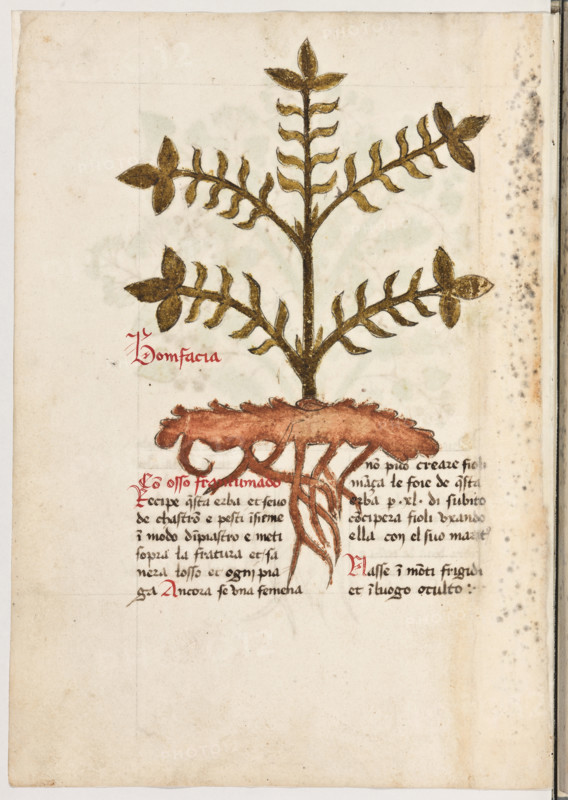 Bomfacia
Cō osso frantumado
Recipe q̄sta erba et seuo
de chastrō e pesti īsieme
ī modo dīpiastro e meti
sopra la fratura et sa
nera losso et ogni pia
ga Ancora se vna femena
nō può creare fioli
māça le foie de q̄sta
erba p .xl. di subito
cōcipera fioli vxando
ella con el suo marit
Nasse ī mōti frigidi
et ī luogo oculto